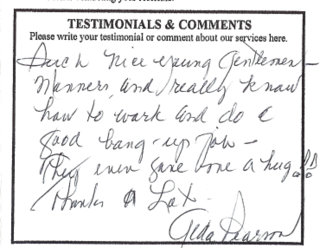 TESTIMONIALS & COMMENTS
Please write your testimonial or comment about our services here.
Such nice young gentlemen -
Manners, and really know
how to work and do a
good bang-up job -
They even gave me a hug!
Thanks A Lot.
Pearson